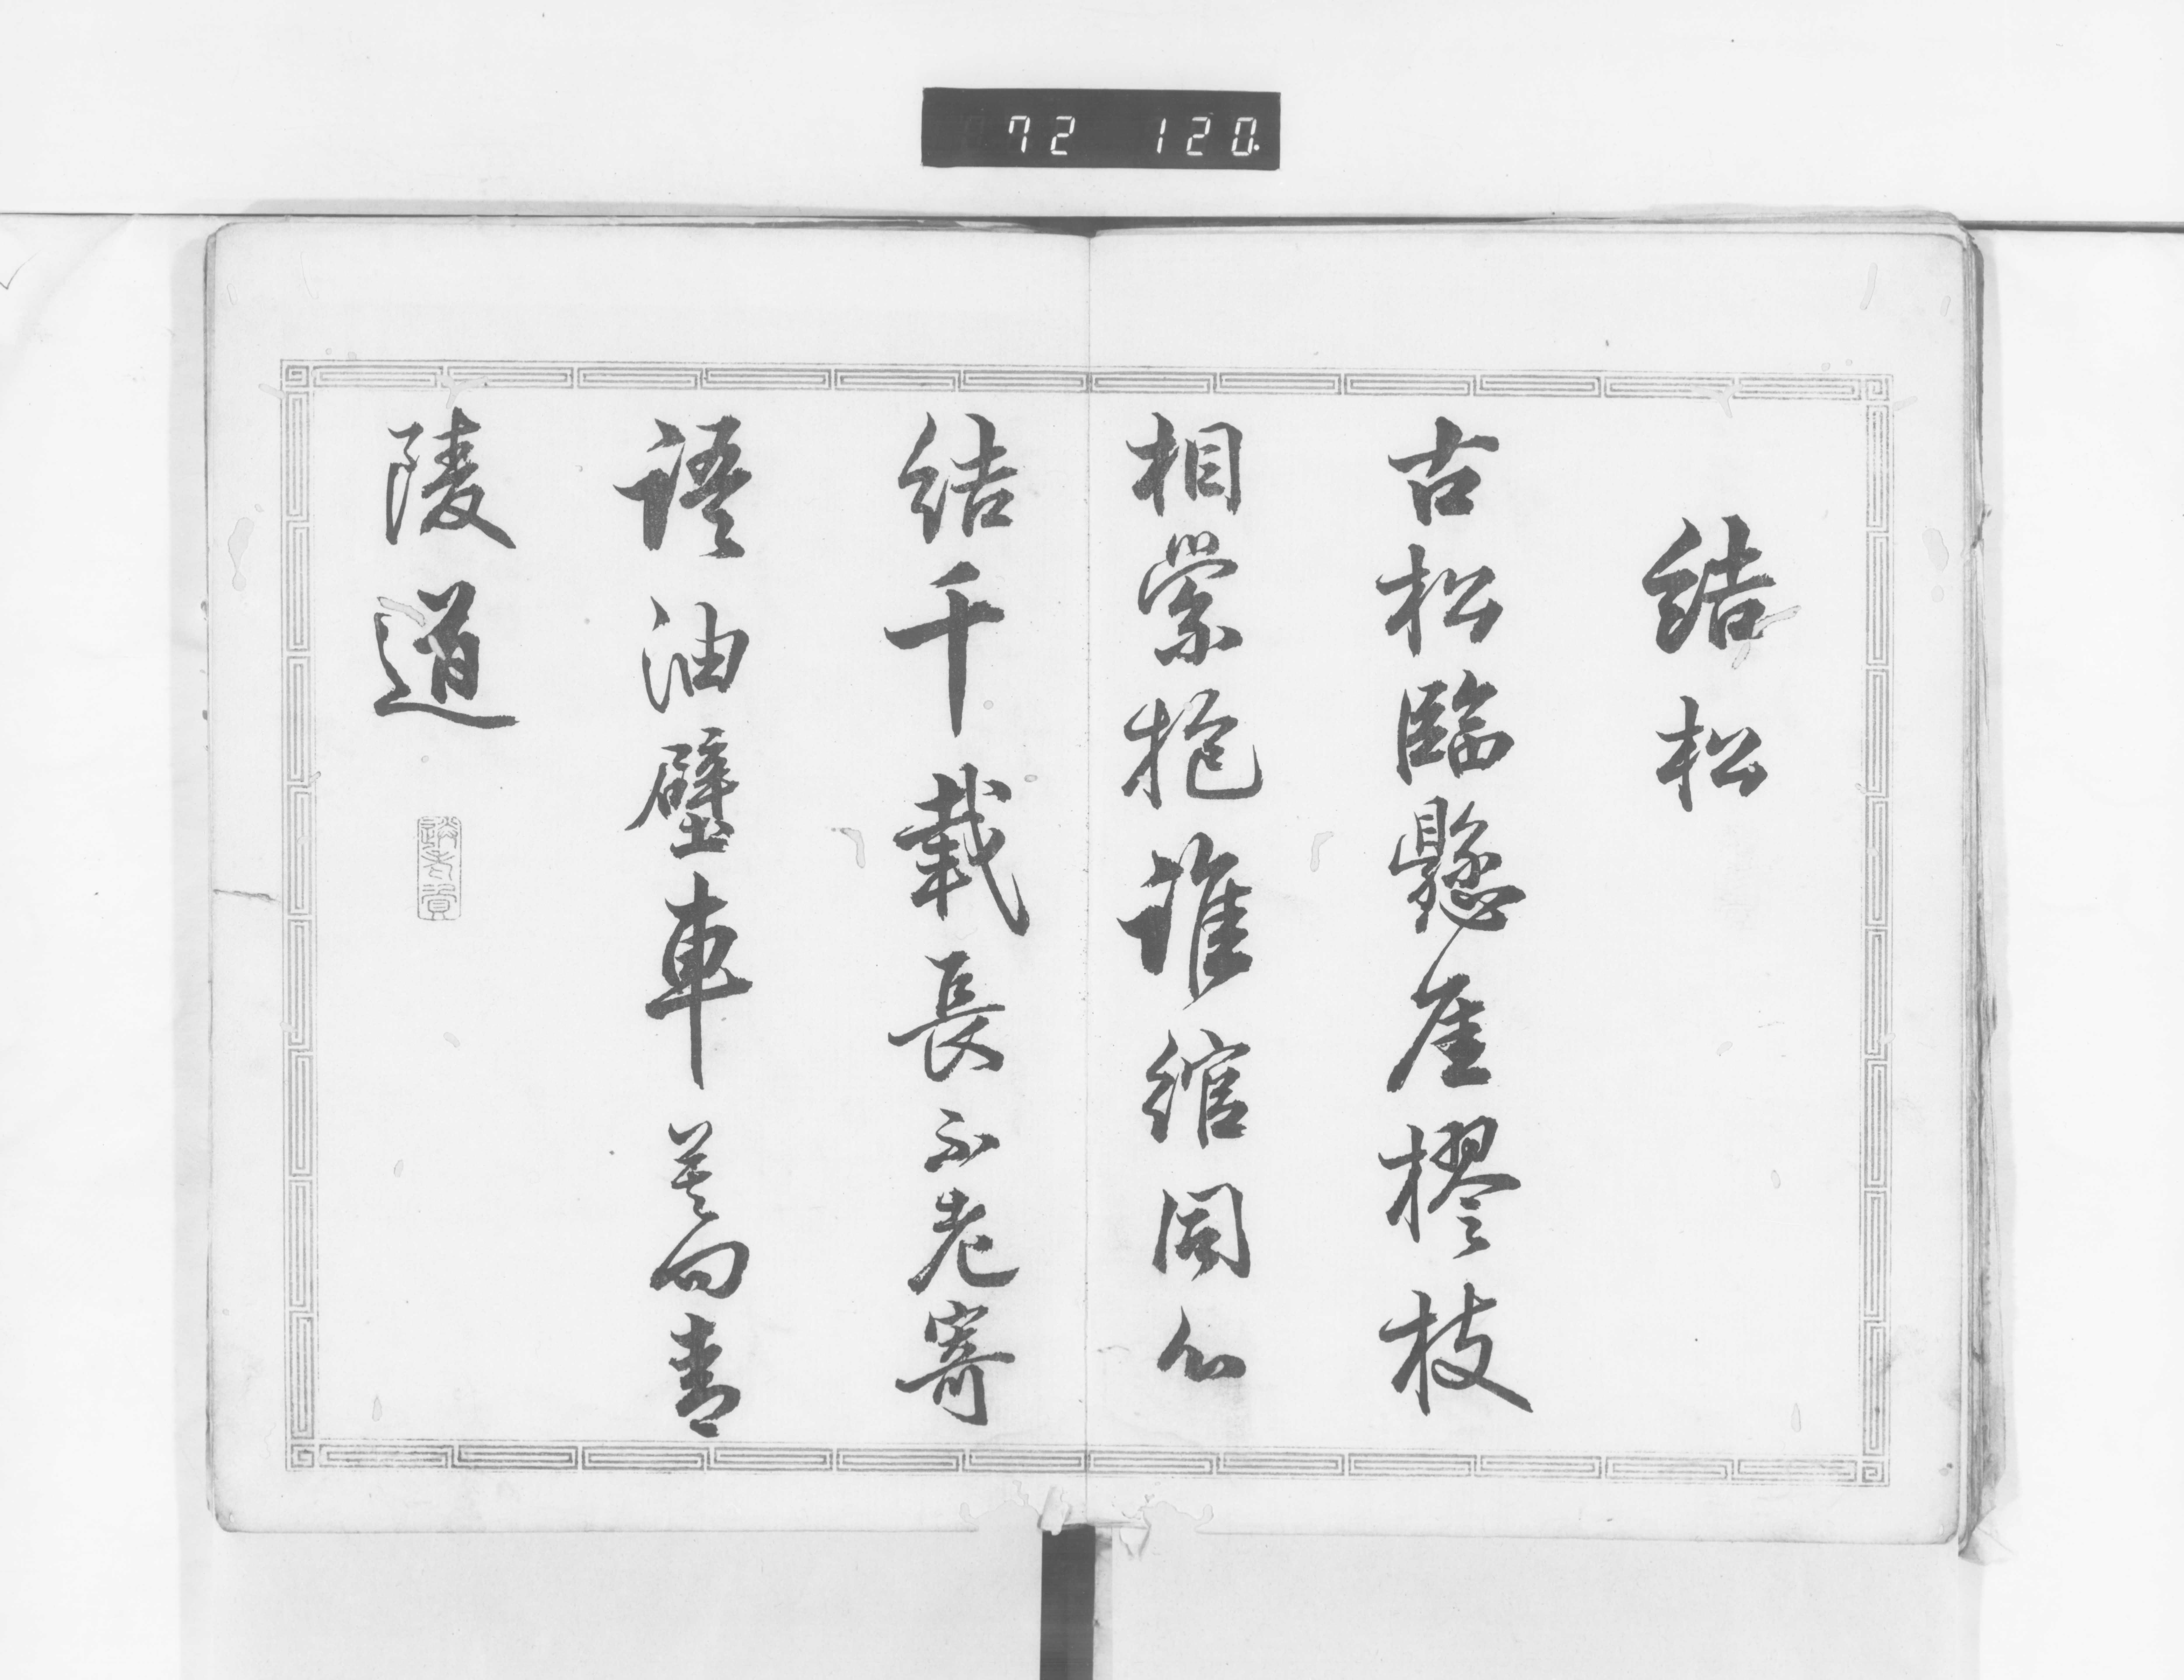 72 120
結松
古松臨懸崖樛枝
相縈抱誰綰同心
結千載長不老寄
語油壁車莫向青
陵道